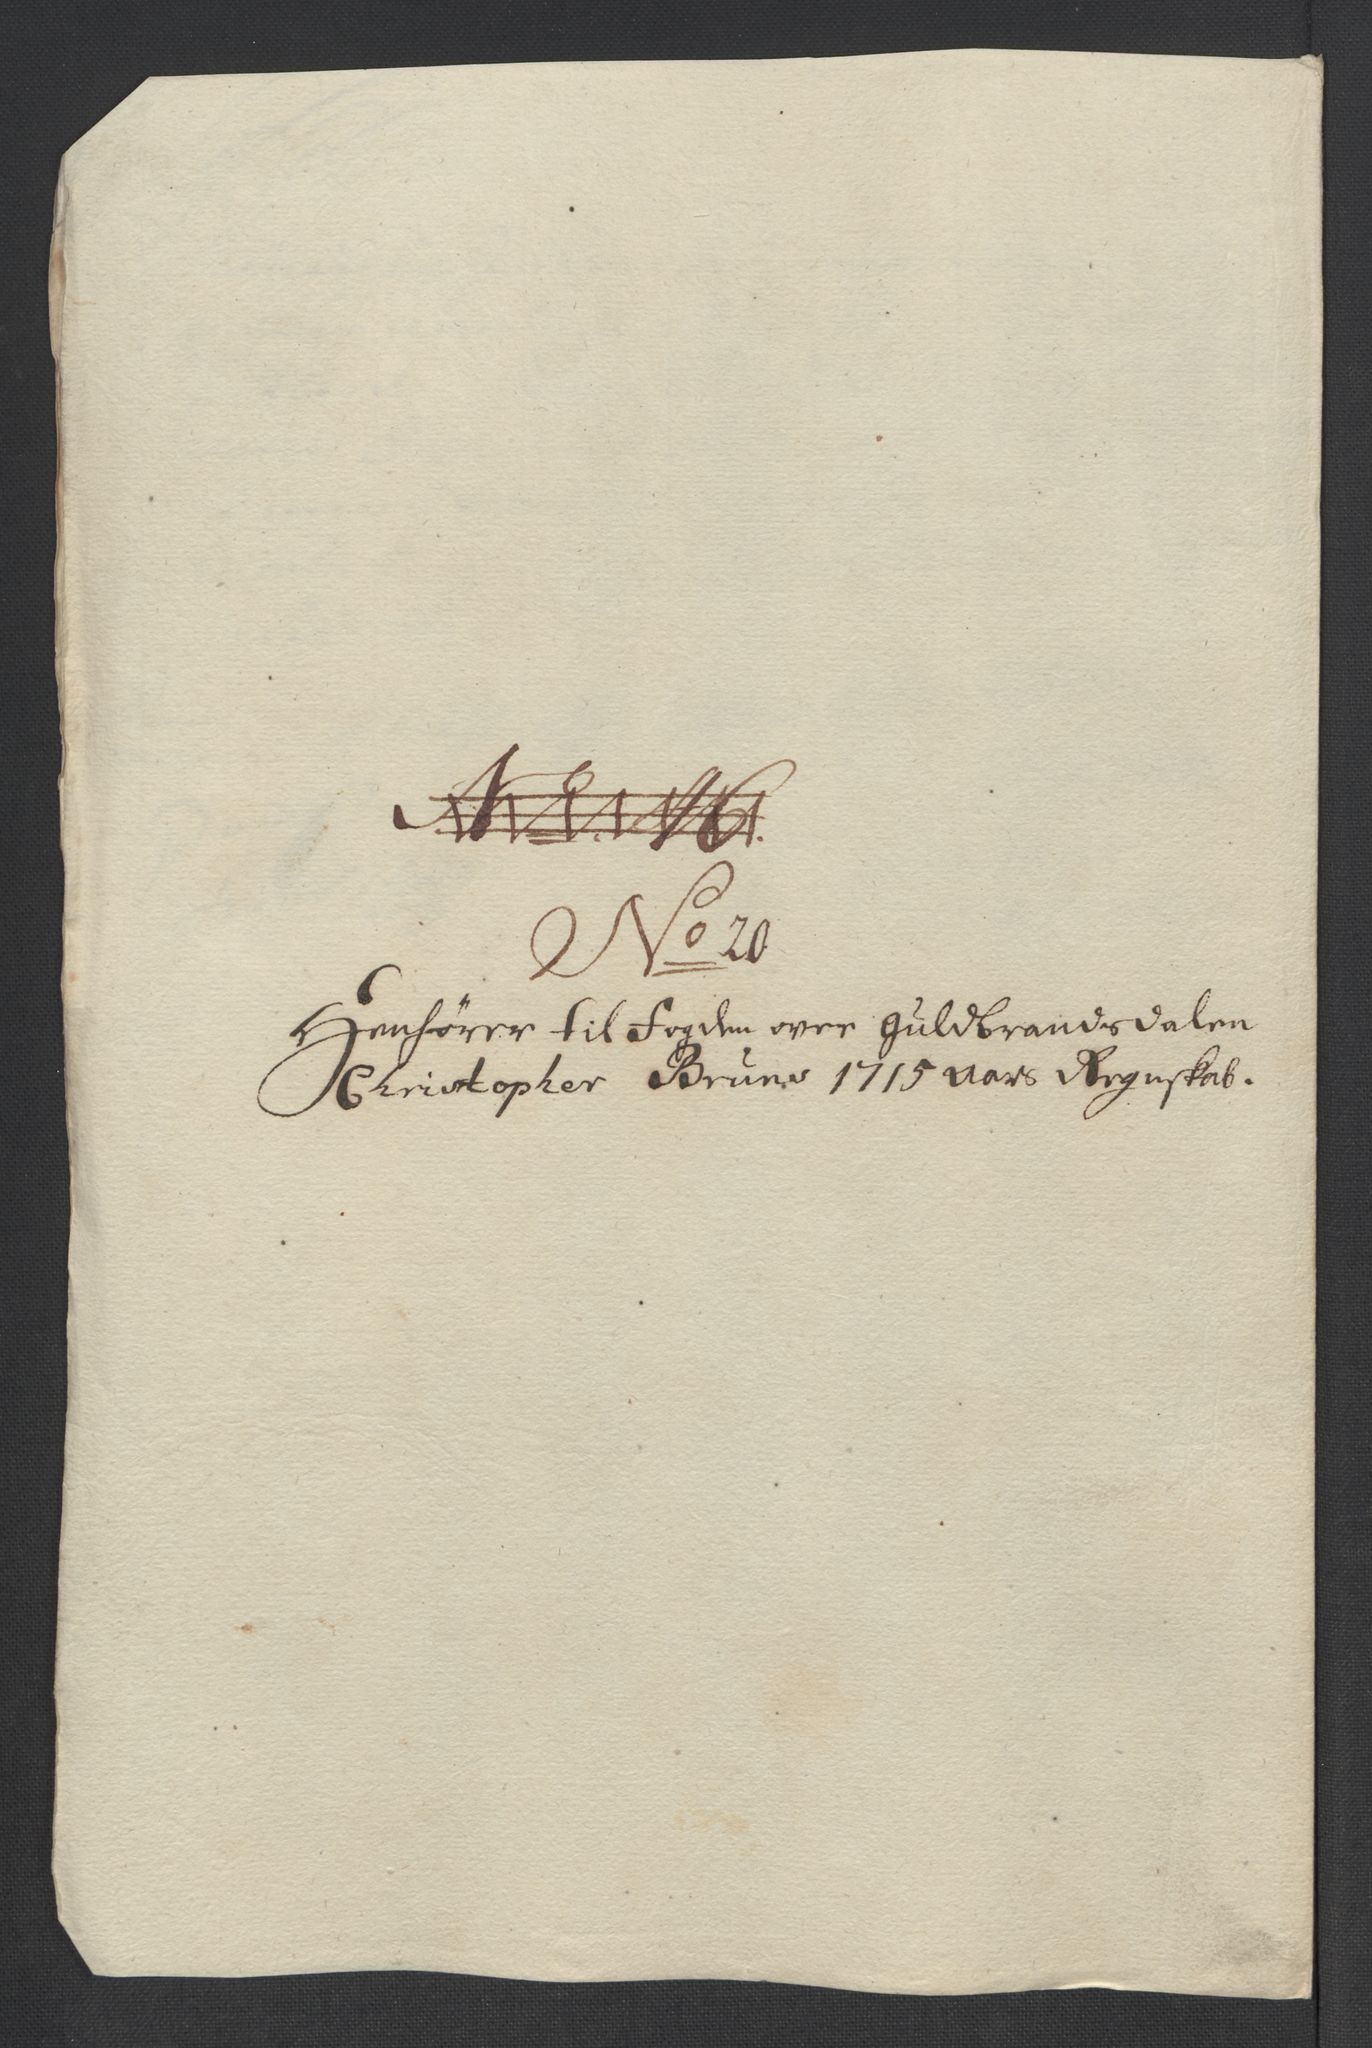 No 20
Henhörer til Fogden over Guldbrandsdalen
Christopher Bruns 1715 aars Regnskab.